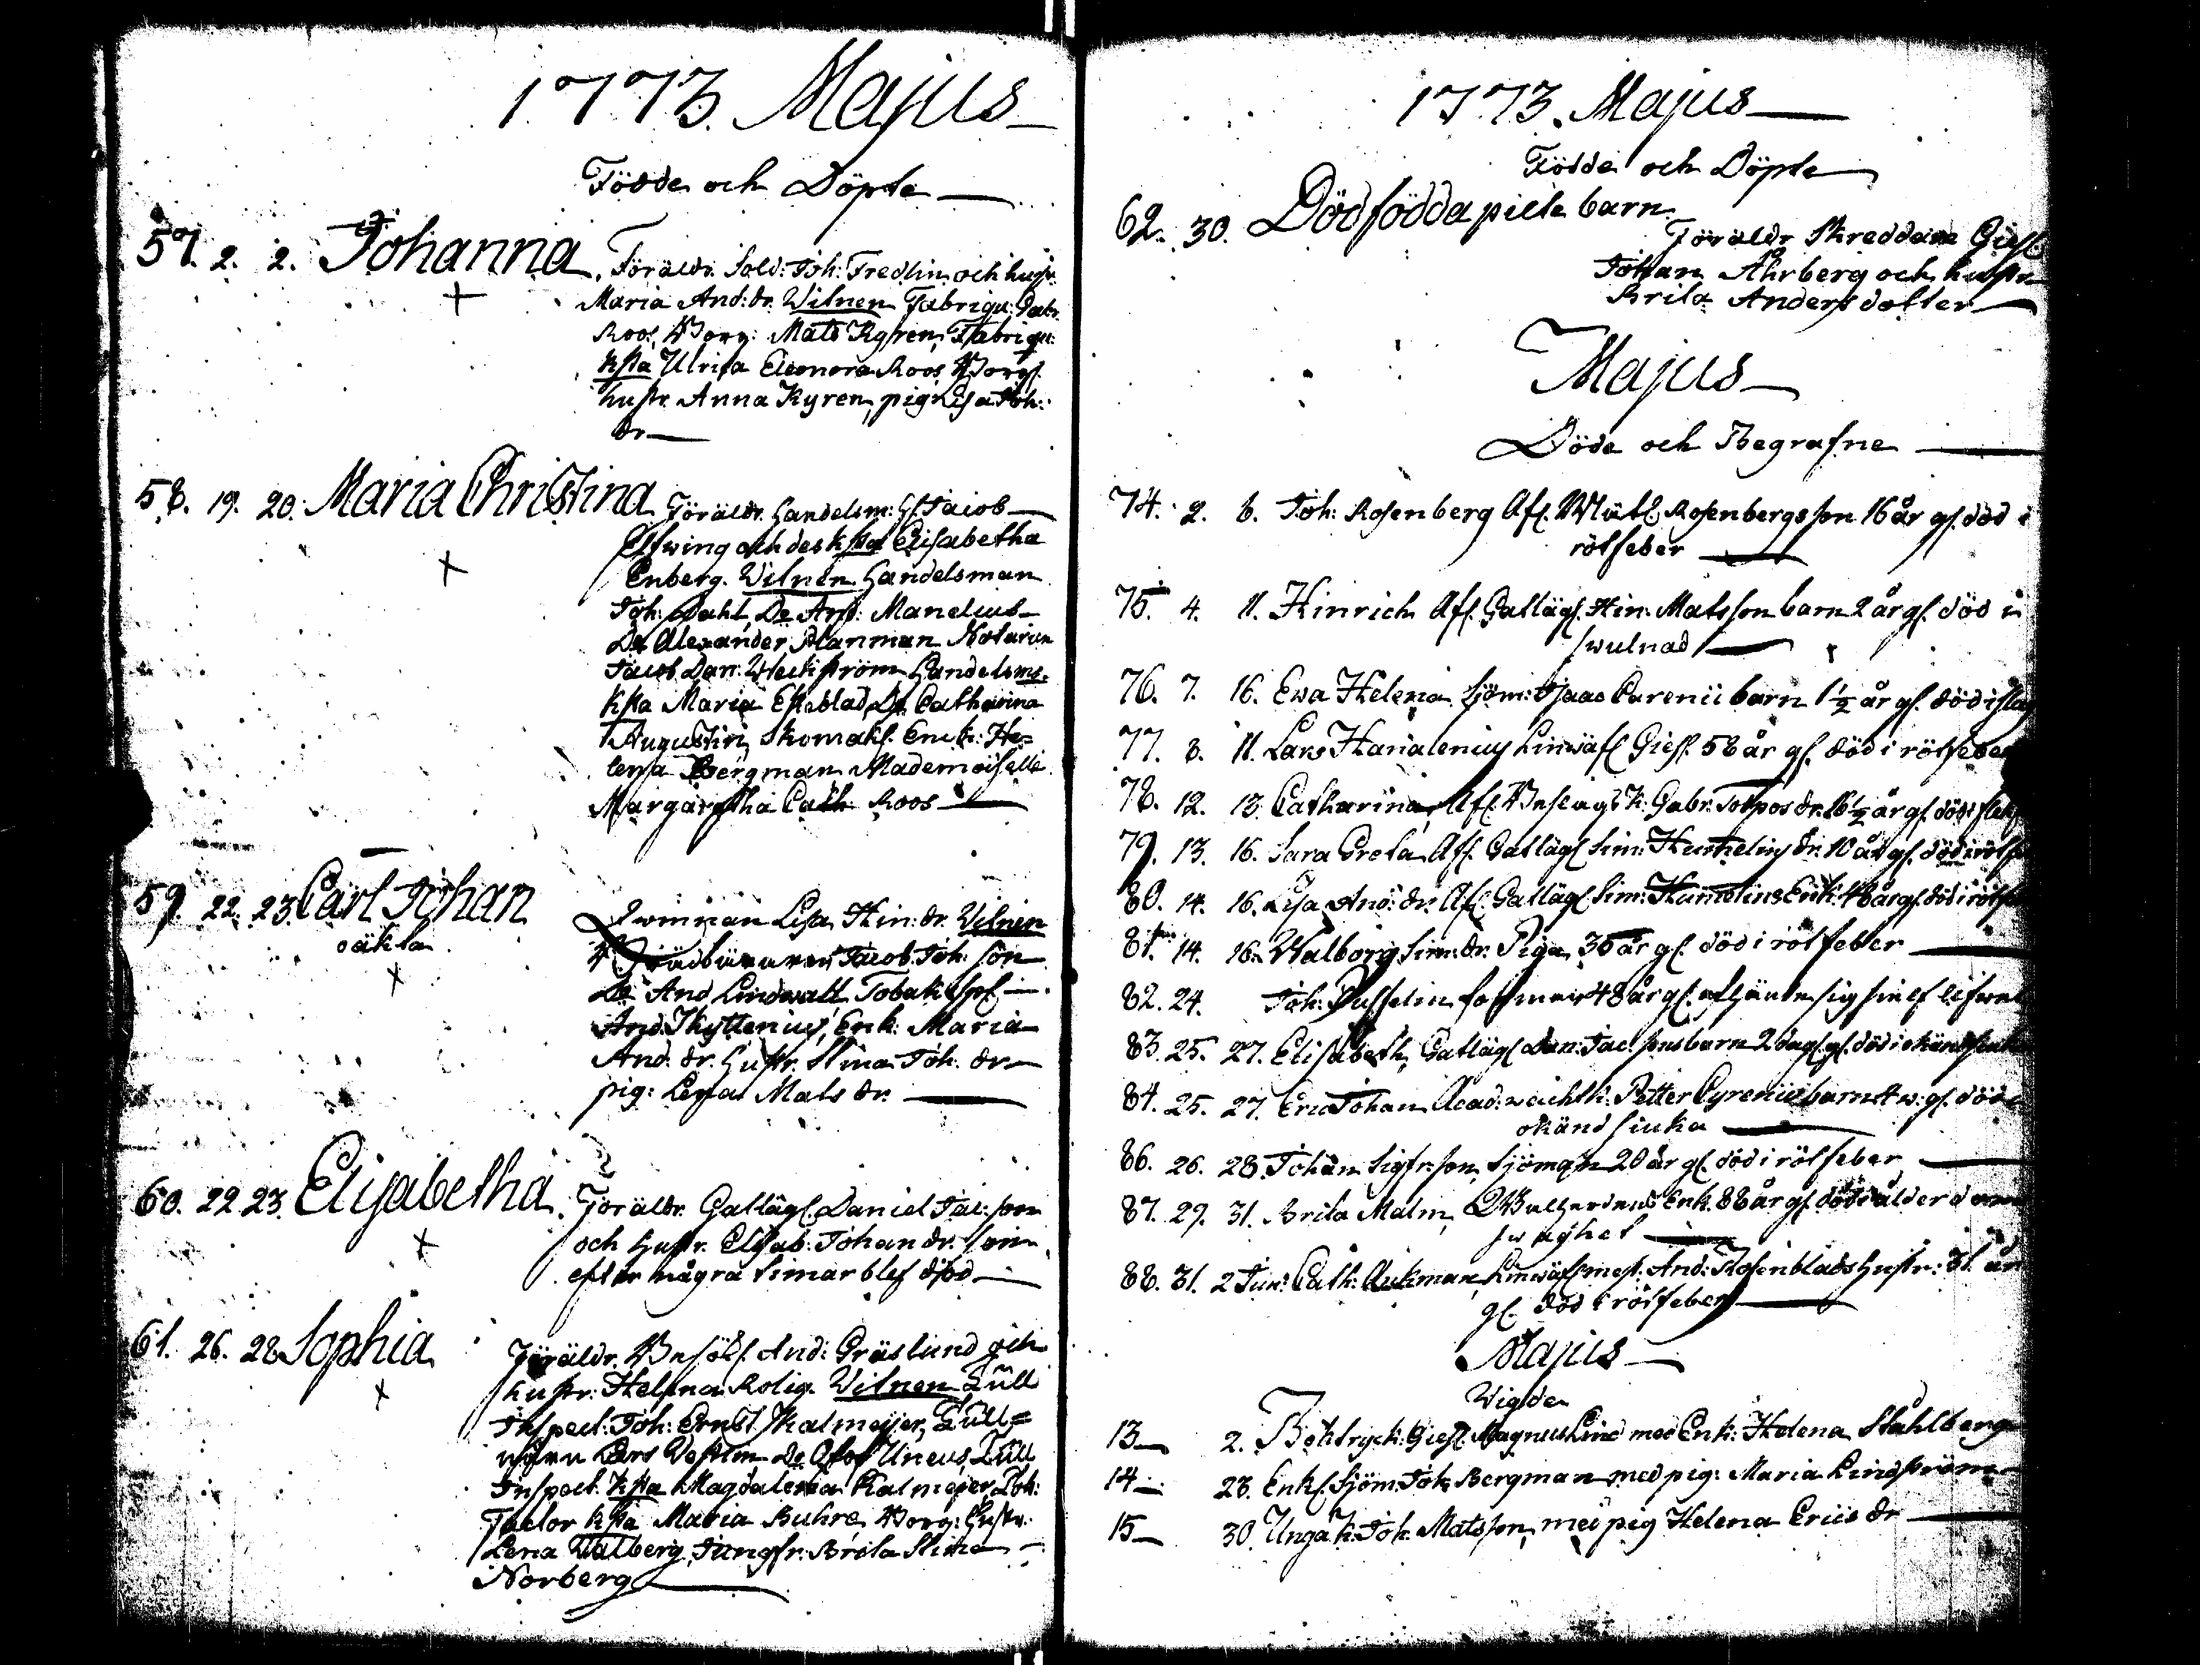 1773. Majus
Födde och Döpte
57. 2. 2. Johanna. Föräldr. Sold: Joh: Fredlin och hustr.
Maria And: dr. Witnen Fabriqu:
Roos, Borg: Mats Kyren, Fabriqu:
Ksta Ulrica Eleonora Roos, Borg.
hustr. Anna Kyren, pig Lisa Joh:
dr
58. 19. 20. Maria Christina Föräldr. Handelsm: H. Jacob
Elfwing och des k sta Elisabetha
Enberg. Witnen Handelsman
Joh: Dahl, Do Arp: Manelius
Do Alexander Planman Notarien
Jacob Dan: Weckström Handelsms.
Ksta Maria Ekeblad, Do Catharina
Augustin, Skomak. Enck: He-
lena Bergman Mademoiselle
Margaretha Cath: Roos
59. 22. 23. Carl Johan
oäkta
Qwinnan Lisa Hin: dr. Witnen
Jacob Joh: son
Do And Lindwall Tobak
And. Skyttenius, Enk: Maria
And. dr. Hustr. Stina Joh. dr
pig: Lena Mats dr.
60. 22 23. Elisabetha. Föräldr. Gatläg. Daniel Jac: son
och Hustr. Elisab: Johan dr. som
efter några timar blef död
61. 26. 28 Sophia Föräldr. Besök. And: Gräslund och
hustr: Helena Rolig. Witnen Tull
Inspect: Joh: Ernst Kalmeijer, Tull=
Lars Do Olof Uneus, Tull
Inspect. Ksta Magdalena Kalmeijer,
Factor Ksta Maria Buhre, Borg: Hustr.
Lena Walberg, Jungfr. Brita Stina
Norberg
1773. Majus
Födde och Döpte
62. 30. Dödfödda pilte barn
Föräldr Skreddare Gies:
Johan Åhrberg och hustr
Brita Andersdotter
Majus
Döde och Begrafne
74. 2. 8. Joh: Rosenberg Af. Rosenbergs son 16 år gl. död i
rötfeber
75. 4. 11. Hinrich Af. Gatläg. Hin: Matsson barn 2 år gl. död i
swulnad
76. 7. 16. Ewa Helena Sjöm: Isaac Carenii barn 1 1/2 år gl. död i slag
77. 8. 11. Lars Linwäf Gies. 58 år gl. död i rötfeber
78. 12. 13. Catharina, Af. Gabr. Tolpos dr. 16 1/2 år gl. död i
79. 13. 16. Sara Greta Af. Gatläg Sim: dr. 10 år gl. död i rötf
80. 14. 16. Lisa And: dr. Af. Gatläg Sim: Enk: 48 år gl. död i rötf
81. 14. 16. Walborg Sim: dr. Piga 35 år gl. död i rötfeber
82. 24. Joh: 48 år gl. sig sielf lifwet
83. 25. 27. Elisabeth, Gatläg Dan: Jac: sons barn 2 dag. gl. död i okänd siuk
84. 25. 27. Eric Johan Acad: wachtk: Petter Cyrenii barn 4 w: gl. död
okänd siuka
86. 26. 28. Johan Sigfr: son Sjöman 20 år gl. död i rötfeber
87. 29. 31. Brita Malm, Enk. 88 år gl. död i ålderdoms
swaghet
88. 31. 2 Jun: Cath: Aukman Linwäfmest. And: Rosenblads Hustr: 31 år
gl. död i rötfeber
Majus
Wigde
13 2. Boktryck: Gies. Magnus Lind med Enk: Helena Stahlberg
14 28. Enk. Sjöm: Joh: Bergman med pig: Maria Lindström
15 30. Unga K. Joh: Matsson, med pig Helena Eriis dr